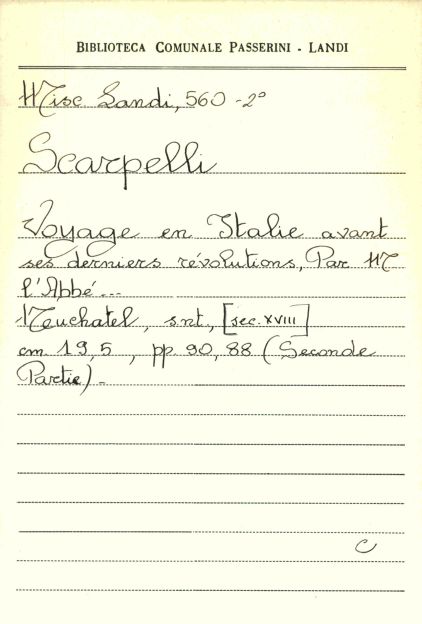 BIBLIOTECA COMUNALE PASSERINI - LANDI
Misc Landi, 560 - 2°
Scarpelli
Voyage en Italie avant
ses derniers révolutions, Par M
l'Abbé...
Neuchatel, s.n.t., [sec. XVIII]
cm. 19,5, pp. 90, 88 (Seconde
Partie) -
C